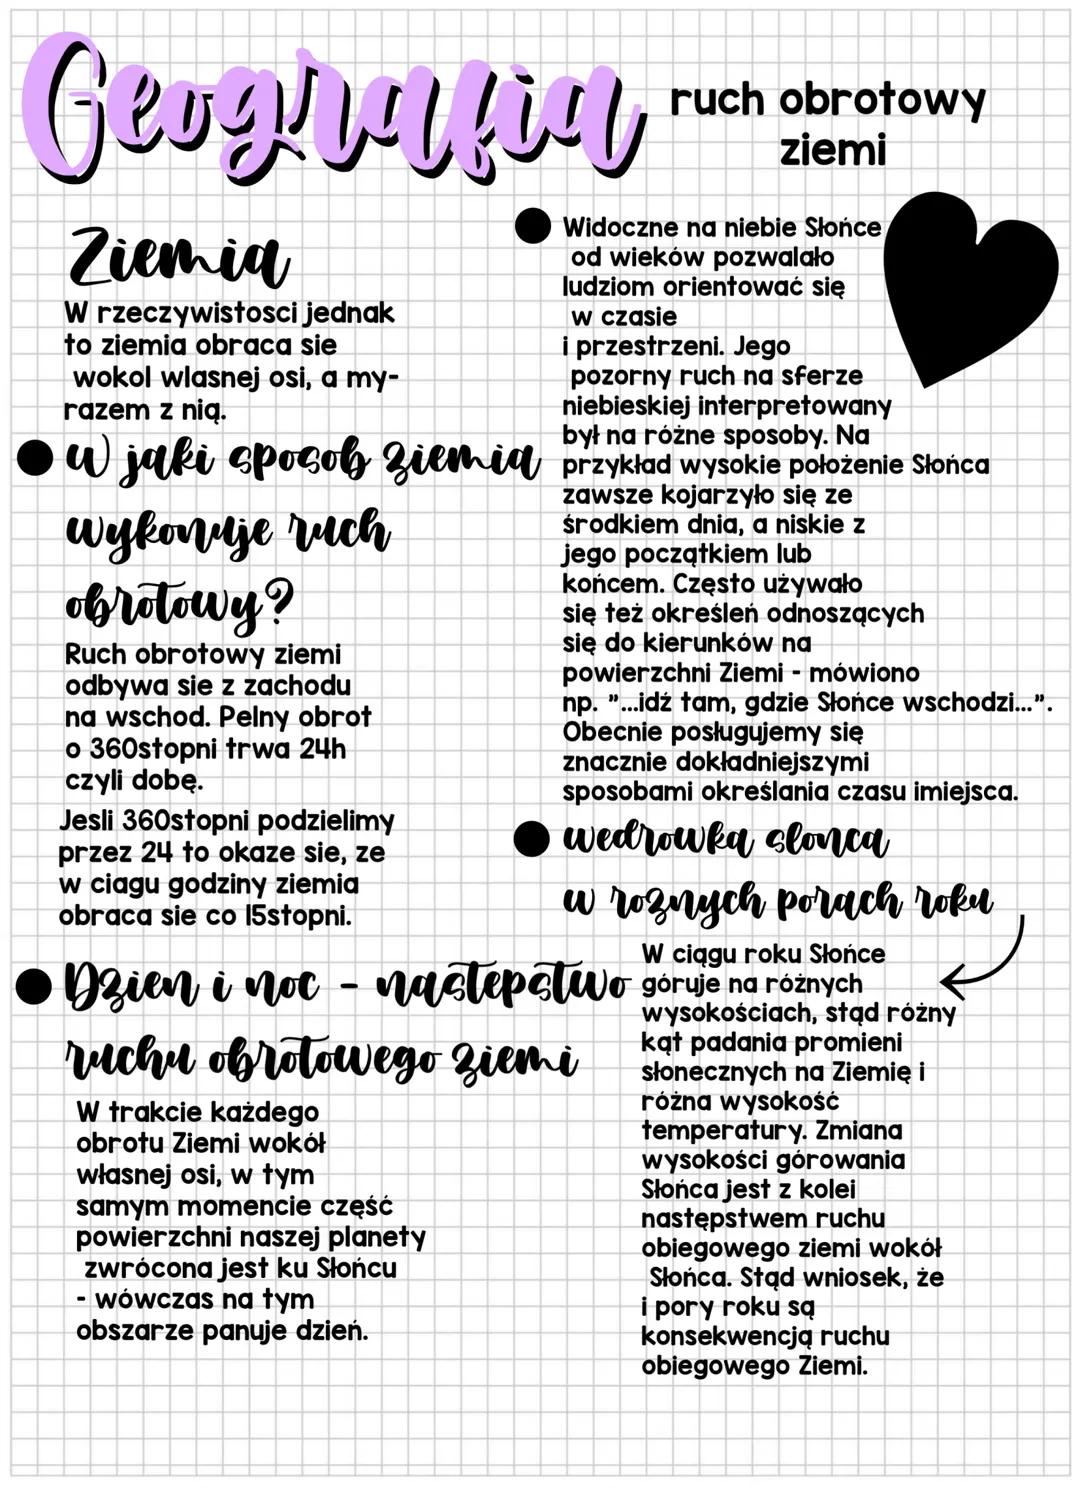 Geografia
ruch obrotowy
ziemi
Ziemia
W rzeczywistosci jednak
to ziemia obraca sie
wokol wlasnej osi, a my-
razem z nią.
W jaki sposob ziemia
wykonuje ruch
obrotowy?
Ruch obrotowy ziemi
odbywa sie z zachodu
na wschod. Pelny obrot
o 360stopni trwa 24h
czyli dobę.
Jesli 360stopni podzielimy
przez 24 to okaze sie, ze
w ciagu godziny ziemia
obraca sie co 15stopni.
Dzien i noc - nastepstwo
ruchu obrotowego ziemi
W trakcie każdego
obrotu Ziemi wokół
własnej osi, w tym
samym momencie część
powierzchni naszej planety
zwrócona jest ku Słońcu
- wówczas na tym
obszarze panuje dzień.
Widoczne na niebie Słońce
od wieków pozwalało
ludziom orientować się
w czasie
i przestrzeni. Jego
pozorny ruch na sferze
niebieskiej interpretowany
był na różne sposoby. Na
przykład wysokie położenie Słońca
zawsze kojarzyło się ze
środkiem dnia, a niskie z
jego początkiem lub
końcem. Często używało
się też określeń odnoszących
się do kierunków na
powierzchni Ziemi - mówiono
np. "...idź tam, gdzie Słońce wschodzi...".
Obecnie posługujemy się
znacznie dokładniejszymi
sposobami określania czasu imiejsca.
wedrowka slonca
w roznych porach roku
W ciągu roku Słońce
góruje na różnych
wysokościach, stąd różny
kąt padania promieni
słonecznych na Ziemię i
różna wysokość
temperatury. Zmiana
wysokości górowania
Słońca jest z kolei
następstwem ruchu
obiegowego ziemi wokół
Słońca. Stąd wniosek, że
i pory roku są
konsekwencją ruchu
obiegowego Ziemi.